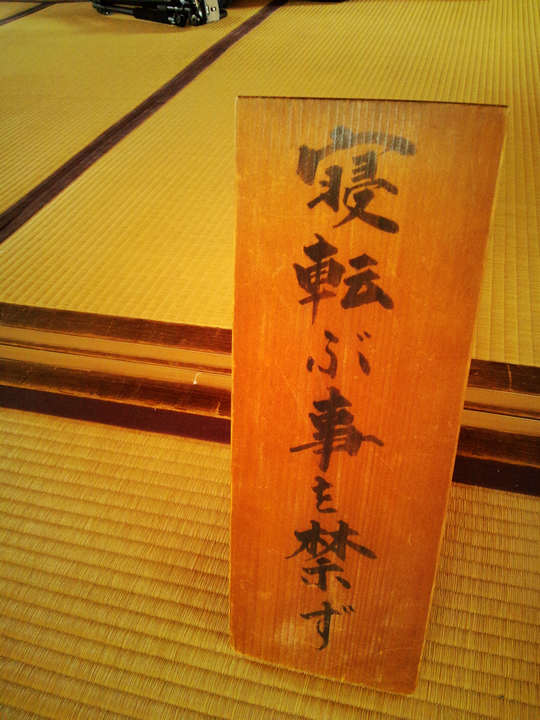 寝転ぶ事を禁ず